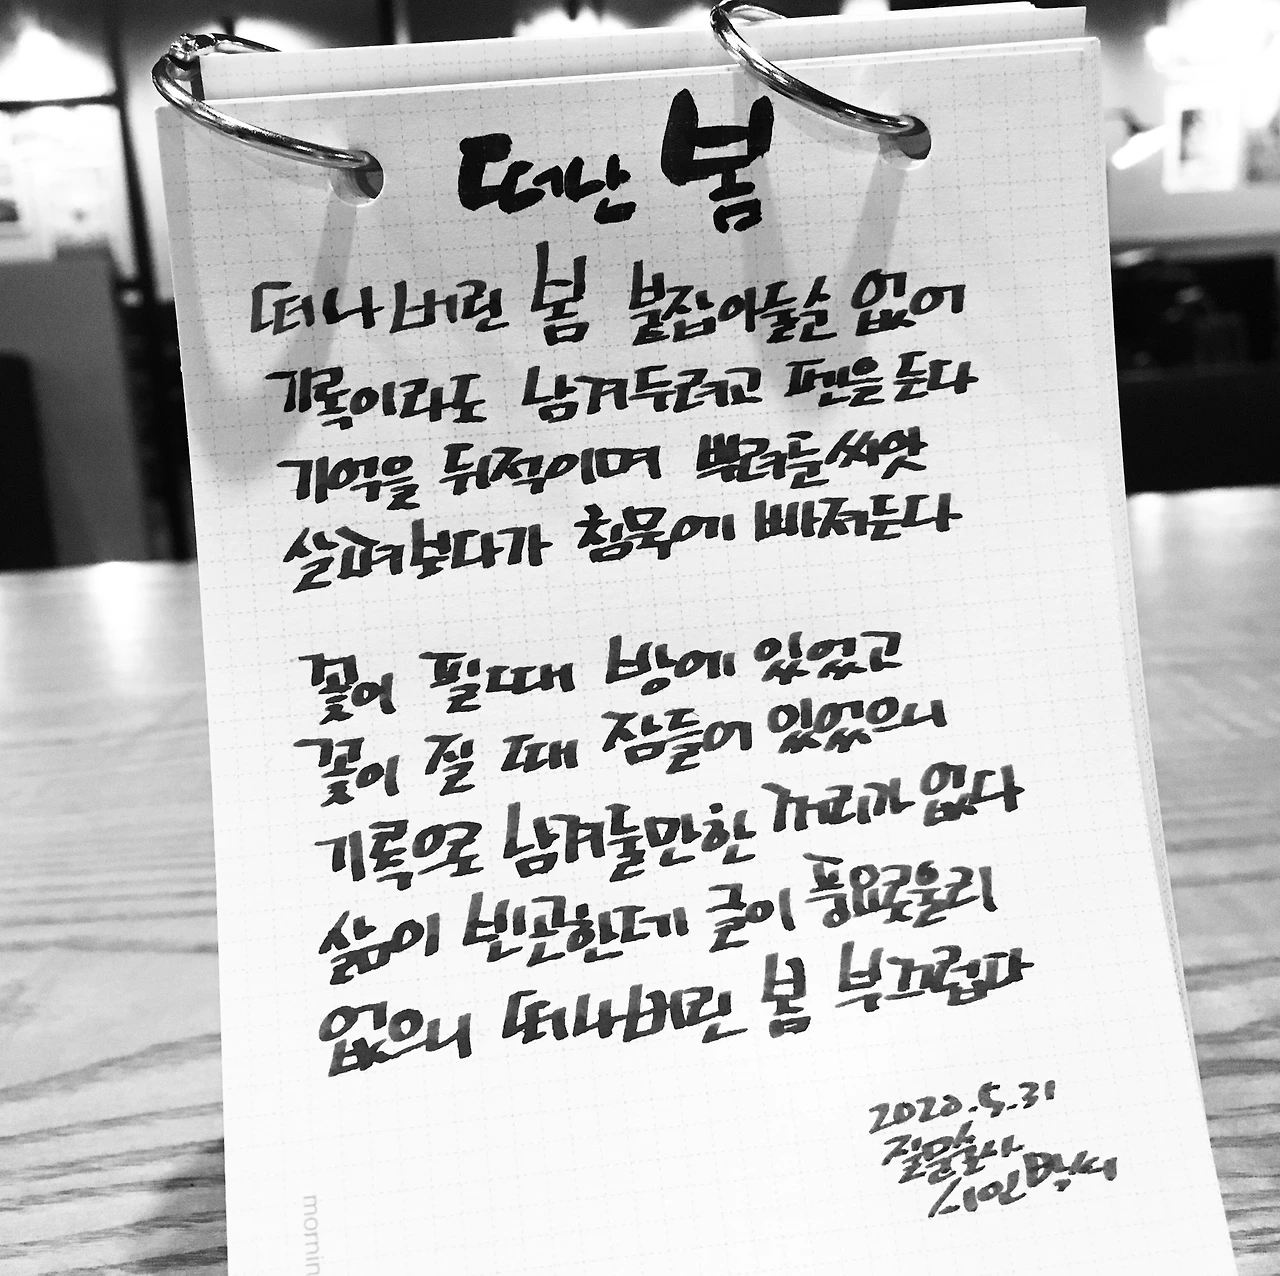 떠난 봄
떠나버린 봄 붙잡아둘순 없어
기록이라도 남겨두려고 펜을 든다
기억을 뒤적이며 뿌려둔 씨앗
살펴보다가 침묵에 빠져든다
꽃이 필때 방에 있었고
꽃이 질 때 잠들어 있었으니
기록으로 남겨둘만한 꺼리가 없다
삶이 빈곤한데 글이 풍요로울리
없으니 떠나버린 봄 부끄럽다
2020.5.31
질문술사
시인박씨
mornin